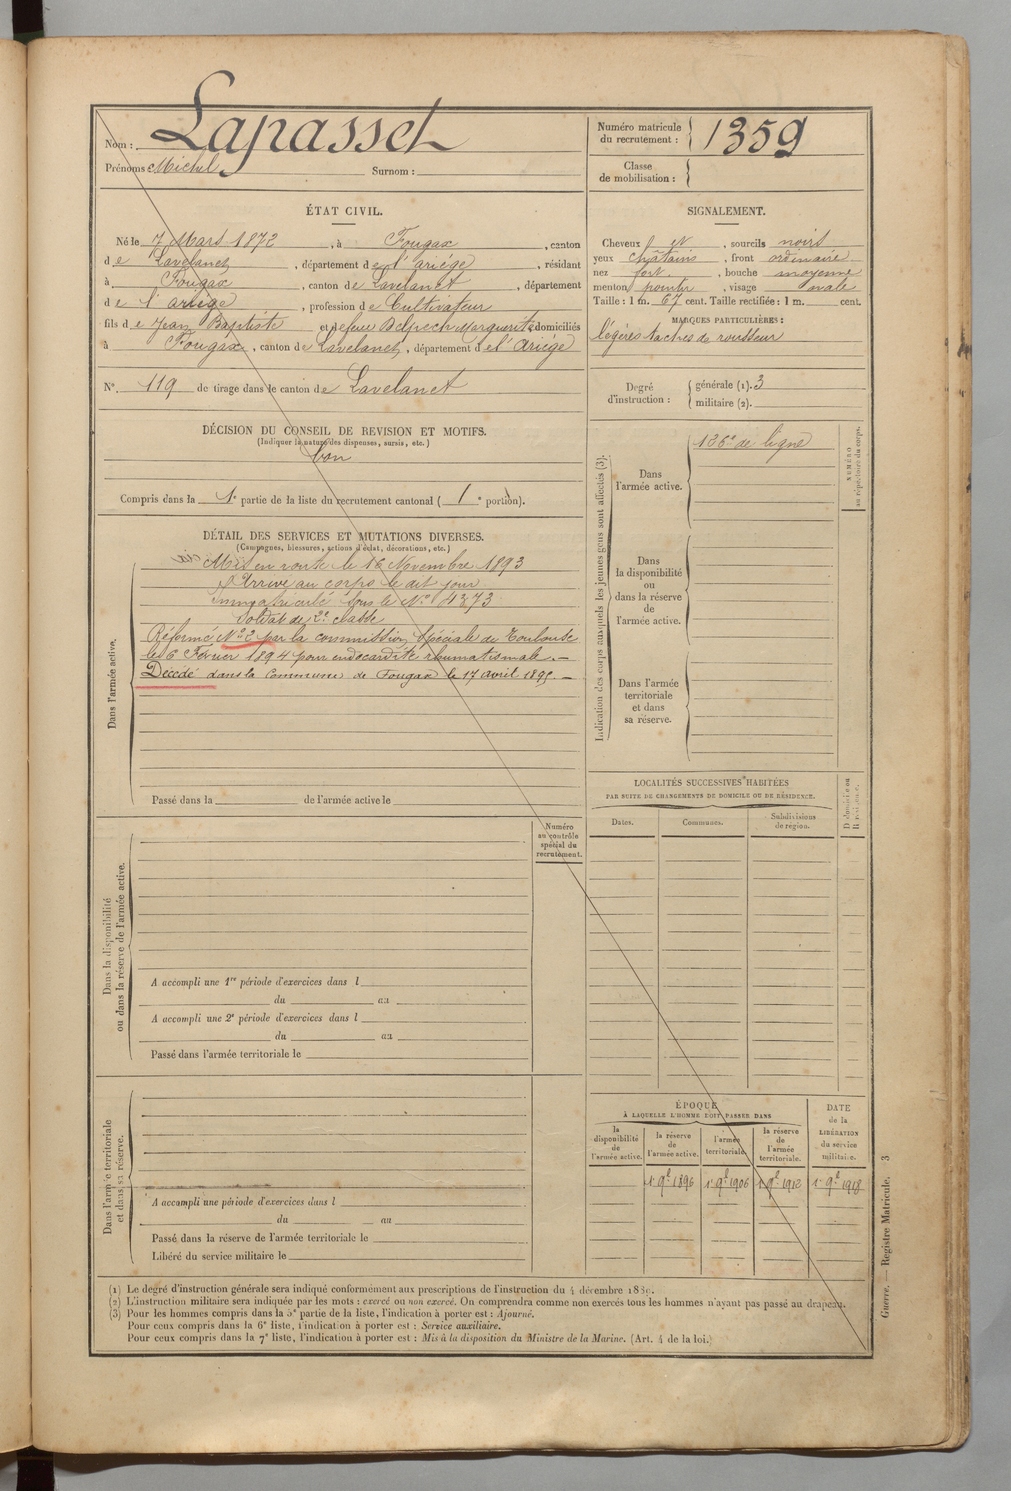 Nom : Lapasset
Prénoms Michel Surnom :
Numéro matricule du recrutement : 1359
Classe de mobilisation :
ÉTAT CIVIL.
Né le 7 Mars 1872, à Fougax, canton
de Lavelanet, département de l'ariége, résidant
à Fougax, canton de Lavelanet, département
de l'ariége, profession de Cultivateur
fils de Jean Baptiste et de feue Belpech Marguerite domiciliés
à Fougax, canton de Lavelanet, département de l'ariége
N° 119 de tirage dans le canton de Lavelanet
SIGNALEMENT.
Cheveux, sourcils noirs
yeux châtains, front ordinaire
nez fort, bouche moyenne
menton pointu, visage ovale
Taille : 1 m. 67 cent. Taille rectifiée : 1 m. cent.
MARQUES PARTICULIÈRES :
légères taches de rousseur
Degré d'instruction : générale (1). 3
militaire (2).
DÉCISION DU CONSEIL DE REVISION ET MOTIFS.
(Indiquer la nature des dispenses, sursis, etc.)
bon
Compris dans la 1e partie de la liste du recrutement cantonal (1e portion).
DÉTAIL DES SERVICES ET MUTATIONS DIVERSES.
(Campagnes, blessures, actions d'éclat, décorations, etc.)
Dans l'armée active.
Mis en route le 16 Novembre 1893
Arrivé au corps le dit jour
immatriculé sous le N° 4373
Soldat de 2e classe
Réformé N° 2 par la commission spéciale de Toulouse
le 6 Février 1894 pour endocardite rhumatismale. —
Décédé dans la Commune de Fougax le 17 avril 1895. —
Passé dans la de l'armée active le
Indication des corps auxquels les jeunes gens sont affectés (3).
Dans l'armée active.
136e de ligne
NUMÉRO au répertoire du corps.
Dans la disponibilité ou dans la réserve de l'armée active.
Dans l'armée territoriale et dans sa réserve.
LOCALITÉS SUCCESSIVES HABITÉES
PAR SUITE DE CHANGEMENTS DE DOMICILE OU DE RÉSIDENCE.
Dates. Communes. Subdivisions de région.
Domicile ou Résidence.
Numéro au contrôle spécial du recrutement.
Dans la disponibilité ou dans la réserve de l'armée active.
A accompli une 1re période d'exercices dans l
du au
A accompli une 2e période d'exercices dans l
du au
Passé dans l'armée territoriale le
Dans l'armée territoriale et dans sa réserve.
A accompli une période d'exercices dans l
du au
Passé dans la réserve de l'armée territoriale le
Libéré du service militaire le
ÉPOQUE
À LAQUELLE L'HOMME DOIT PASSER DANS
la disponibilité de l'armée active.
la réserve de l'armée active.
l'armée territoriale.
la réserve de l'armée territoriale.
DATE de la LIBÉRATION du service militaire.
1r 9e 1896 1r 9e 1906 1r 9e 1912 1r 9e 1918
(1) Le degré d'instruction générale sera indiqué conformément aux prescriptions de l'instruction du 4 décembre 1889.
(2) L'instruction militaire sera indiquée par les mots : exercé ou non exercé. On comprendra comme non exercés tous les hommes n'ayant pas passé au drapeau.
(3) Pour les hommes compris dans la 5e partie de la liste, l'indication à porter est : Ajourné.
Pour ceux compris dans la 6e liste, l'indication à porter est : Service auxiliaire.
Pour ceux compris dans la 7e liste, l'indication à porter est : Mis à la disposition du Ministre de la Marine. (Art. 4 de la loi.)
Guerre. — Registre Matricule. 3